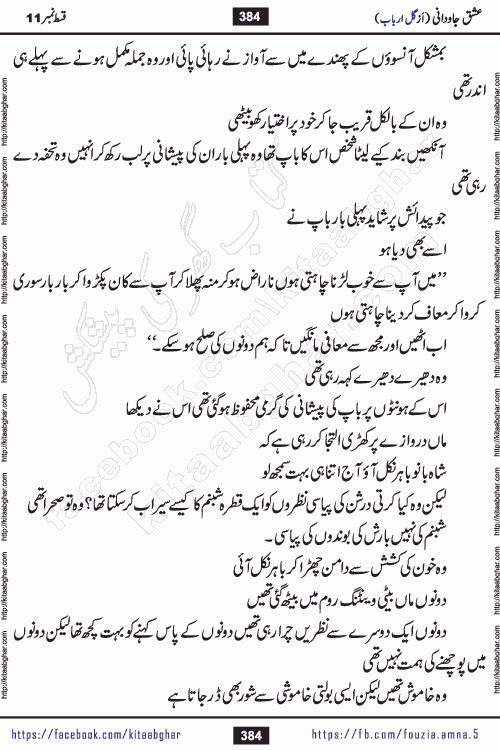 عشق جاودانی (از گل ارباب)
384
قسط نمبر 11
بمشکل آنسوؤں کے پھندے میں سے آواز نے رہائی پائی اور وہ جملہ مکمل ہونے سے پہلے ہی
اندر تھی
وہ ان کے بالکل قریب جا کر خود پر اختیار کھو بیٹھی
آنکھیں بند کیے لیٹا شخص اس کا باپ تھا وہ پہلی بار ان کی پیشانی پر لب رکھ کر انہیں وہ تحفہ دے
رہی تھی
جو پیدائش پر شاید پہلی بار باپ نے
اسے بھی دیا ہو
”میں آپ سے خوب لڑنا چاہتی ہوں ناراض ہو کر منہ پھلا کر آپ سے کان پکڑوا کر بار بار سوری
کروا کر معاف کر دینا چاہتی ہوں
اب اٹھیں اور مجھ سے معافی مانگیں تا کہ ہم دونوں کی صلح ہو سکے۔“
وہ دھیرے دھیرے کہہ رہی تھی
اس کے ہونٹوں پر باپ کی پیشانی کی گرمی محفوظ ہو گئی تھی اس نے دیکھا
ماں دروازے پر کھڑی التجا کر رہی ہے کہ
شاہ بانو باہر نکل آؤ آج اتنا ہی بہت سمجھ لو
لیکن وہ کیا کرتی درشن کی پیاسی نظروں کو ایک قطرہ شبنم کا کیسے سیراب کر سکتا تھا؟ وہ تو صحرا تھی
شبنم کی نہیں بارش کی بوندوں کی پیاسی۔
وہ خون کی کشش سے دامن چھڑا کر باہر نکل آئی
دونوں ماں بیٹی ویٹنگ روم میں بیٹھ گئی تھیں
دونوں ایک دوسرے سے نظریں چرا رہی تھیں دونوں کے پاس کہنے کو بہت کچھ تھا لیکن دونوں
میں پوچھنے کی ہمت نہیں تھی
وہ خاموش تھیں لیکن ایسی بولتی خاموشی سے شور بھی ڈر جاتا ہے
http://kitaabghar.com http://kitaabghar.com http://kitaabghar.com http://kitaabghar.com http://kitaabghar.com http://kitaabghar.com http://kitaabghar.com http://kitaabghar.com
کتاب گھر کی پیشکش
kitaabghar.com
facebook.com/kitaabghar
https://facebook.com/kitaabghar
384
https://fb.com/fouzia.amna.5